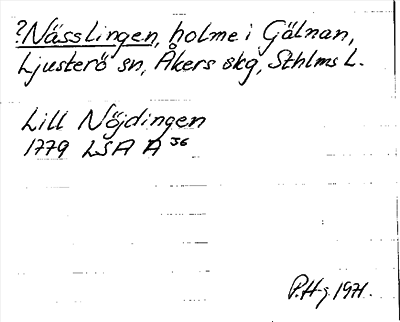 ?Nässlingen, holme i Gälnan,
Ljusterö sn, Åkers skg, Sthlms L.
Lill Nöjdingen
1779 LSA A 36
P.Hg 1971.